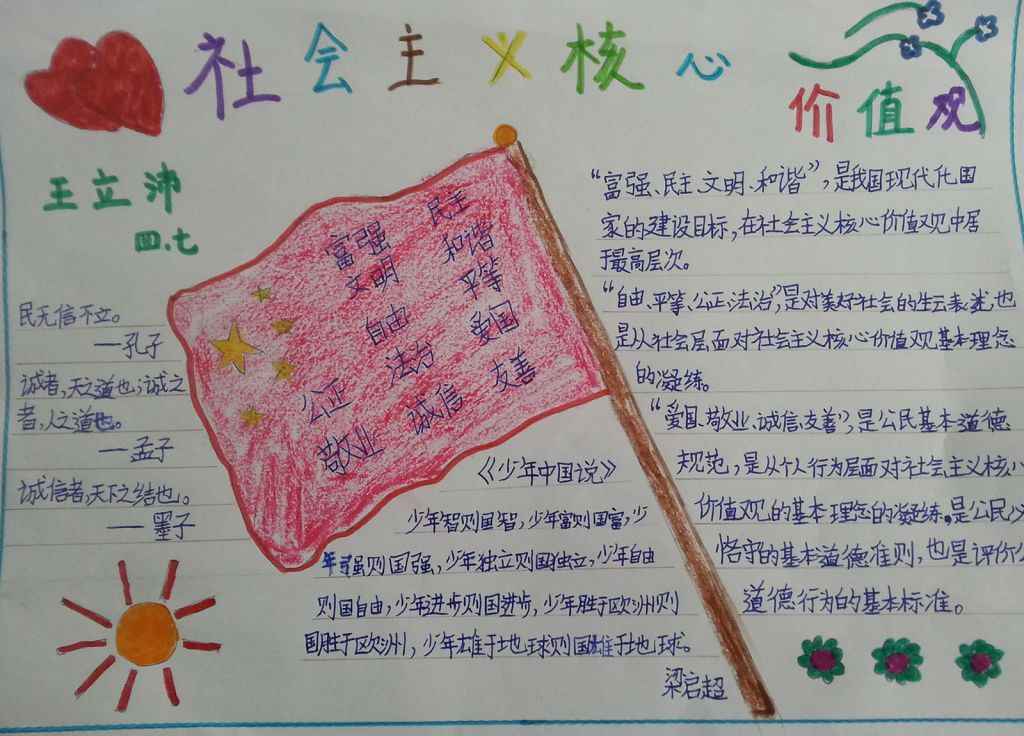 社会主义核心
价值观
王立沛
四.七
民无信不立。
——孔子
诚者,天之道也;诚之
者,人之道也。
——孟子
诚信者,天下之结也。
——墨子
富强 民主
文明 和谐
自由 平等
法治 爱国
公正 诚信 友善
敬业
“富强、民主、文明、和谐”,是我国现代化国
家的建设目标,在社会主义核心价值观中居
于最高层次。
“自由、平等、公正、法治”,是对美好社会的生云表述,也
是从社会层面对社会主义核心价值观基本理念
的凝练。
“爱国、敬业、诚信、友善”,是公民基本道德
规范,是从个人行为层面对社会主义核心
价值观的基本理念的凝练。是公民必
恪守的基本道德准则,也是评价公
道德行为的基本标准。
《少年中国说》
少年智则国智,少年富则国富,少
年强则国强,少年独立则国独立,少年自由
则国自由,少年进步则国进步,少年胜于欧洲则
国胜于欧洲,少年雄于地球则国雄于地球。
梁启超